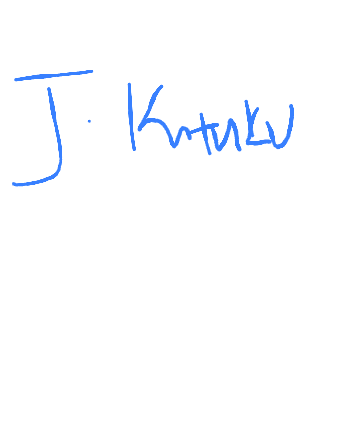 J. Kutuku